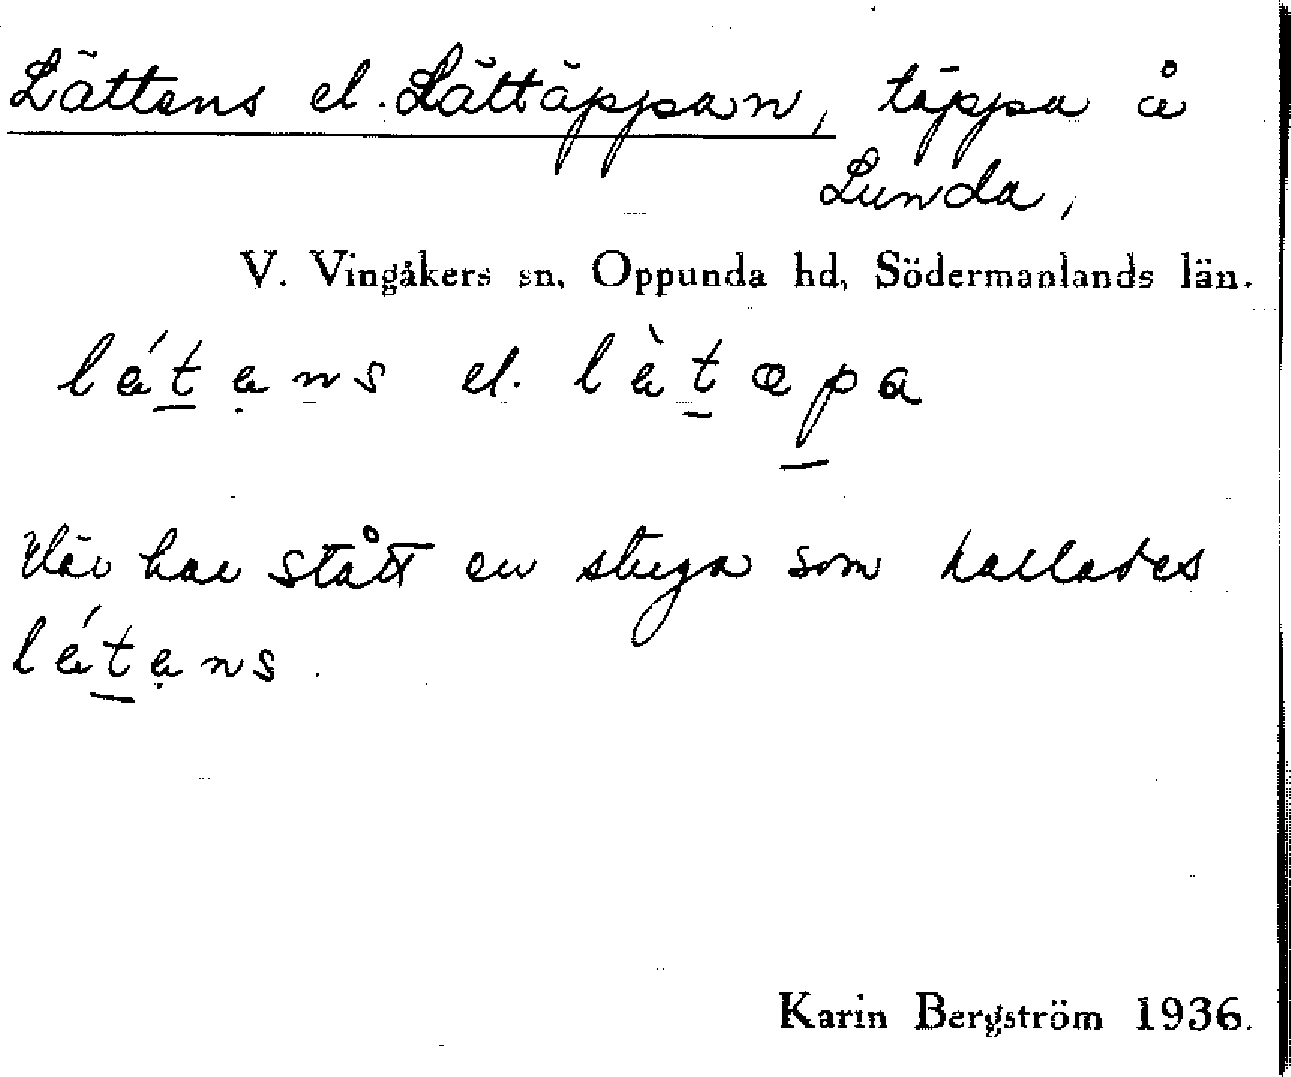 Lättens el. Lättäppan, täppa å
Lunda,
V. Vingåkers sn, Oppunda hd, Södermanlands län.
lä́t̲ạns el. lä̀t̲æp̲a
Här har stått en stuga som kallades
lä́t̲ạns.
Karin Bergström 1936.